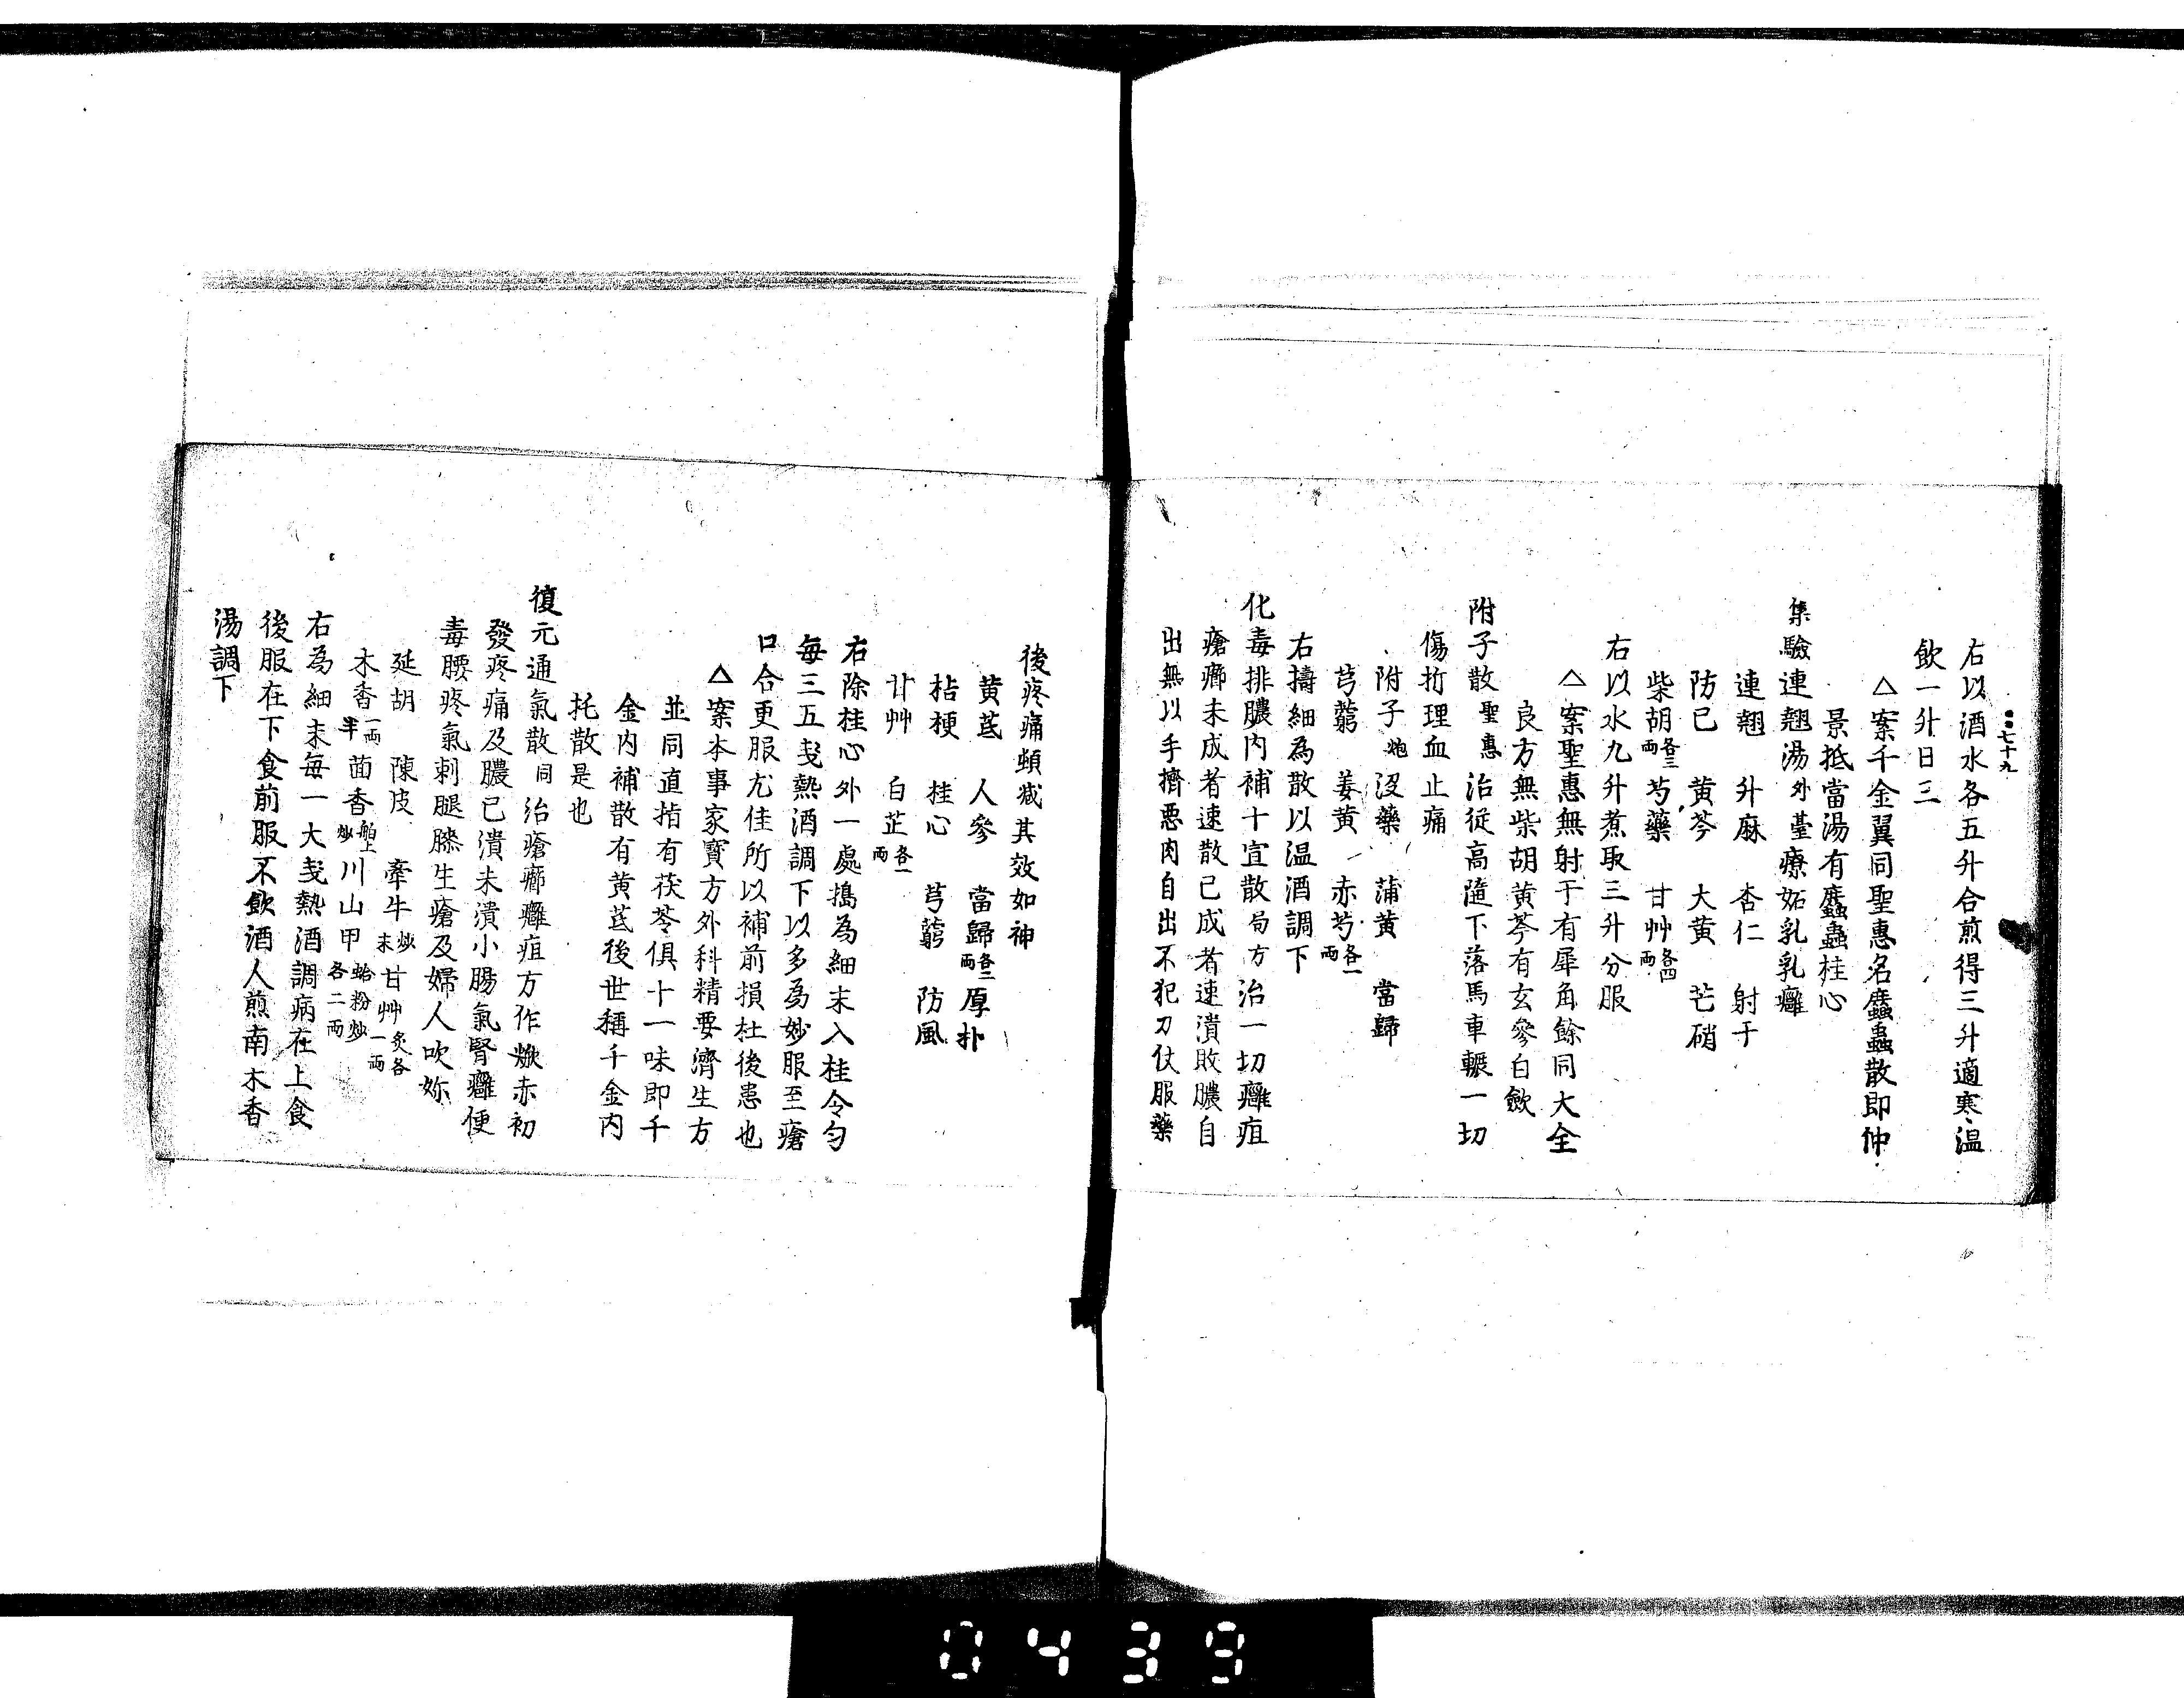 七十九
右以酒水各五升合煎得三升適寒温
飲一升日三
△案千金翼同聖惠名䗪蟲散即仲
景抵當湯有䗪蟲桂心
集驗連翹湯外臺療妬乳乳癰
連翹 升麻 杏仁 射干
防已 黄芩 大黄 芒硝
柴胡各三両 芍藥 甘艸各四両
右以水九升煮取三升分服
△案聖惠無射干有犀角餘同大全
良方無柴胡黄芩有玄參白斂
附子散聖惠治從高墮下落馬車輾一切
傷折理血止痛
附子炮 没藥 蒲黄 當歸
芎藭 姜黄 赤芍各一両
右擣細為散以温酒調下
化毒排膿内補十宣散局方治一切癰疽
瘡癤未成者速散已成者速潰敗膿自
出無以手擠悪肉自出不犯刀仗服藥
後疼痛頓减其效如神
黄芪 人參 當歸各二両 厚朴
桔梗 桂心 芎藭 防風
甘艸 白芷各一両
右除桂心外一處搗為細末入桂令匀
毎三五㦮熱酒調下以多為妙服至瘡
口合更服尤佳所以補前損杜後患也
△案本事家寶方外科精要濟生方
並同直指有茯苓俱十一味即千
金内補散有黄芪後世稱千金内
托散是也
復元通氣散同治瘡癤癰疽方作焮赤初
發疼痛及膿已潰未潰小腸氣腎癰便
毒腰疼氣刺腿膝生瘡及婦人吹妳
延胡 陳皮 牽牛炒末 甘艸炙各一両
木香一両半 茴香舶上炒 川山甲蛤粉炒各二両
右為細末每一大㦮熱酒調病在上食
後服在下食前服不飲酒人煎南木香
湯調下
0439